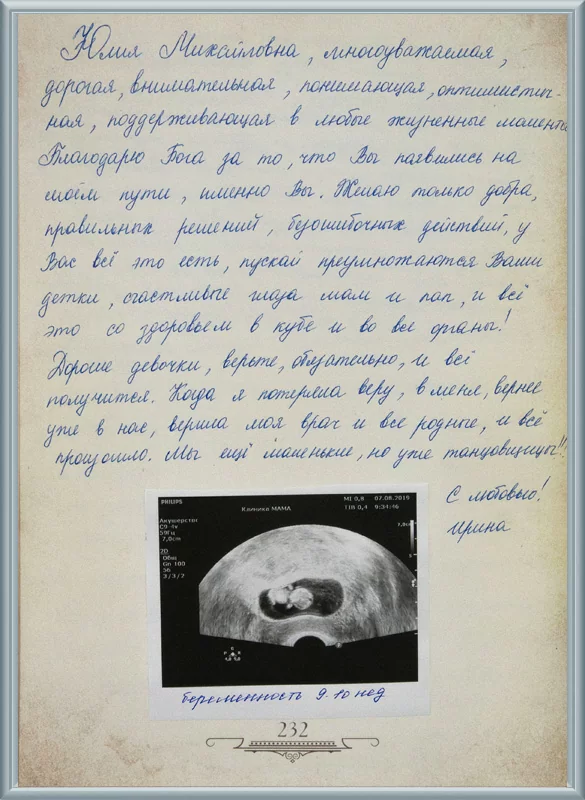 Юлия Михайловна, многоуважаемая,
дорогая, внимательная, понимающая, оптимистич-
ная, поддерживающая в любые жизненные моменты
Благодарю Бога за то, что Вы появились на
моём пути, именно Вы. Желаю только добра,
правильных решений, безошибочных действий, у
Вас всё это есть, пускай преумножаются Ваши
детки, счастливые глаза мам и пап, и всё
это со здоровьем в кубе и во все органы!
Дорогие девочки, верьте, обязательно, и всё
получится. Когда я потеряла веру, в меня, вернее
уже в нас, верила моя врач и все родные, и всё
произошло. Мы ещё маленькие, но уже танцовщицы!!
С любовью!
Ирина
PHILIPS
MI 0,8 07.08.2019
Клиника МАМА
TIB 0,4 9:34:46
Акушерство
C9-4v
59Гц
7,0cm
2D
Общ
Gn 100
56
3/3/2
беременность 9-10 нед
232